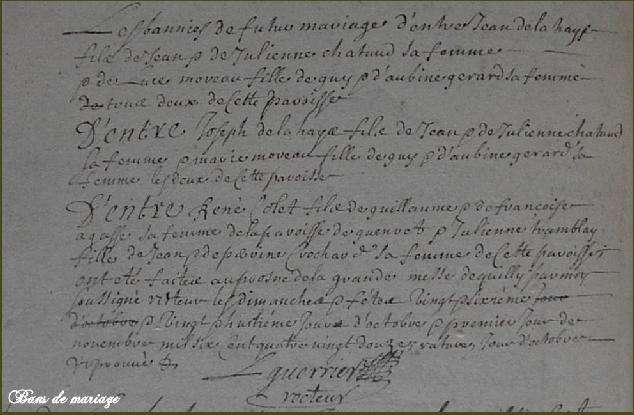 Les bannies de futur mariage d'entre Jean de la haye
fils de Jean & de Julienne chataud sa femme
& de moreau fille de guy & d'aubine gerard sa femme
tous deux de cette paroisse
D'entre Joseph de la haye fils de Jean & de Julienne chataud
sa femme & marie moreau fille de guy & d'aubine gerard sa
femme les deux de cette paroisse
D'entre René Colet fils de guillaume & de francoise
agasse sa femme de la paroisse de & Julienne tramblay
fille de Jean & de perrine Crochard sa femme de Cette paroisse
ont eté faites au prosne de la grande messe de quilly par moy
soussigné recteur les dimanches & fétes vingt & sixieme jour
d'octobre & vingt & huitiéme jour d'octobre & premier jour de
novembre mil six cent quatre vingt douze ratures jour d'octobre
reprouvé
L guerrier
recteur
Bans de mariage